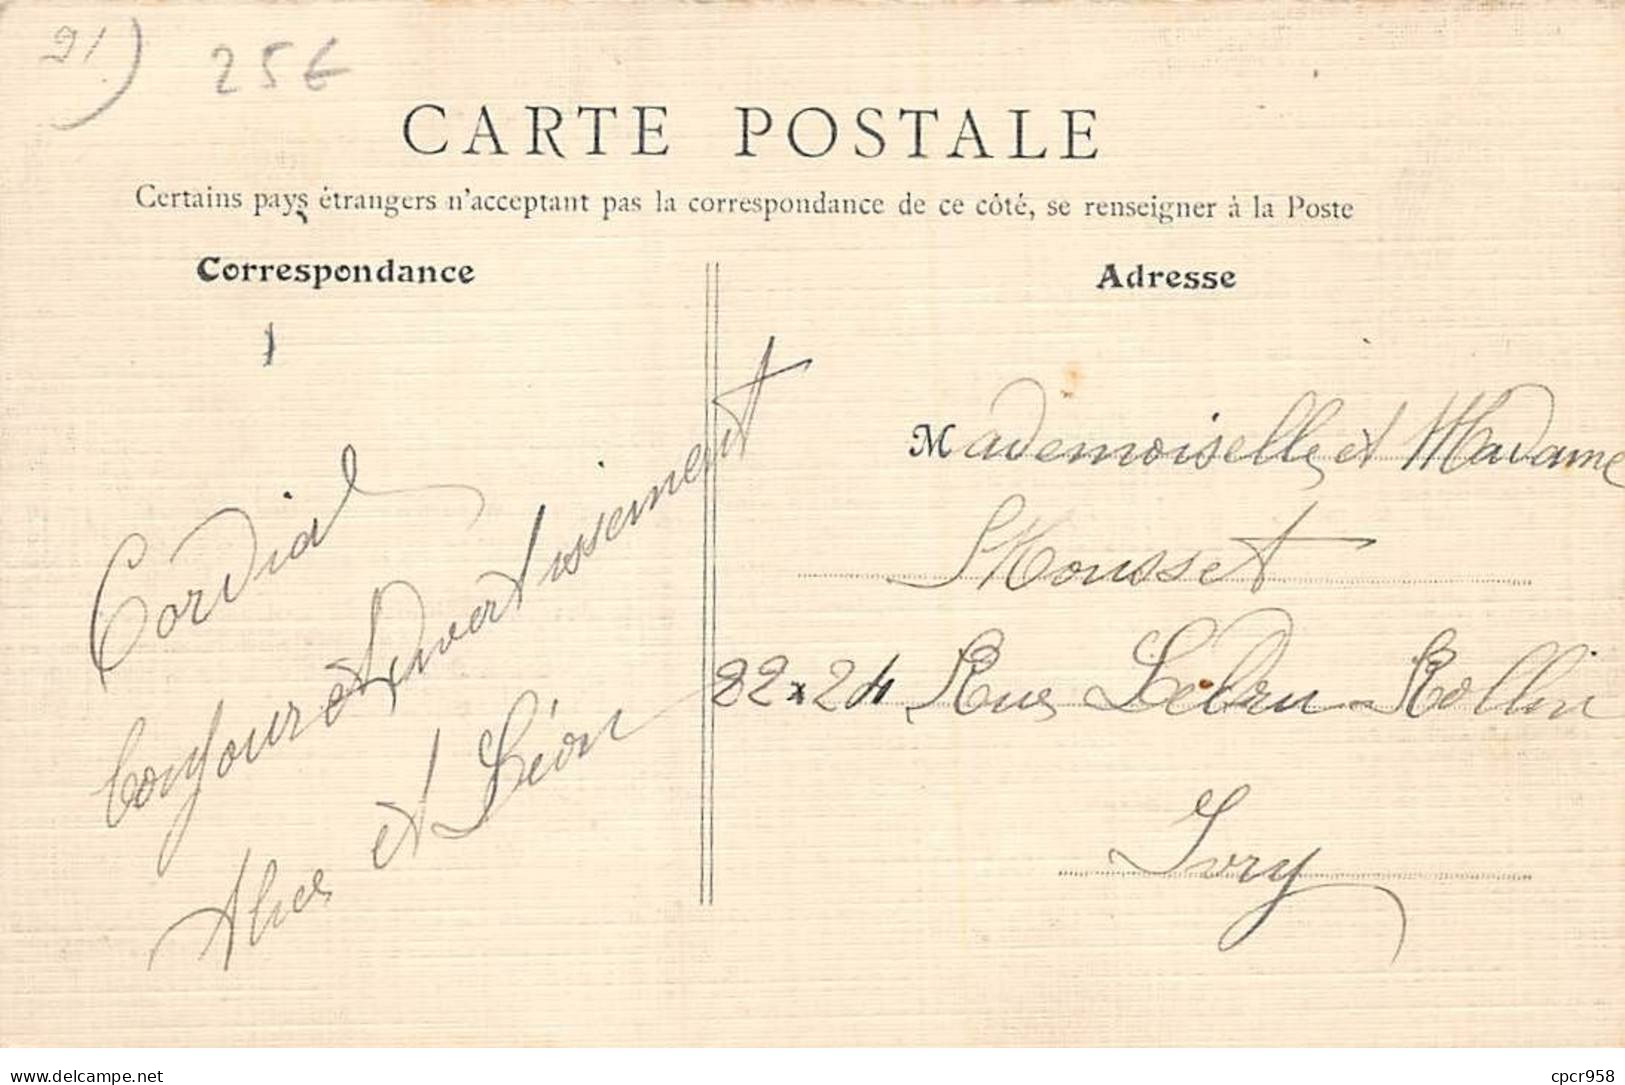 91)
25€
CARTE POSTALE
Certains pays étrangers n'acceptant pas la correspondance de ce côté, se renseigner à la Poste
Correspondance
Adresse
Cordial
bonjour et divertissement
Alice et Léon
Mademoiselle et Madame
Mousset
22 x 24 Rue Ledru-Rollin
Ivry
www.delcampe.net
cpcr958